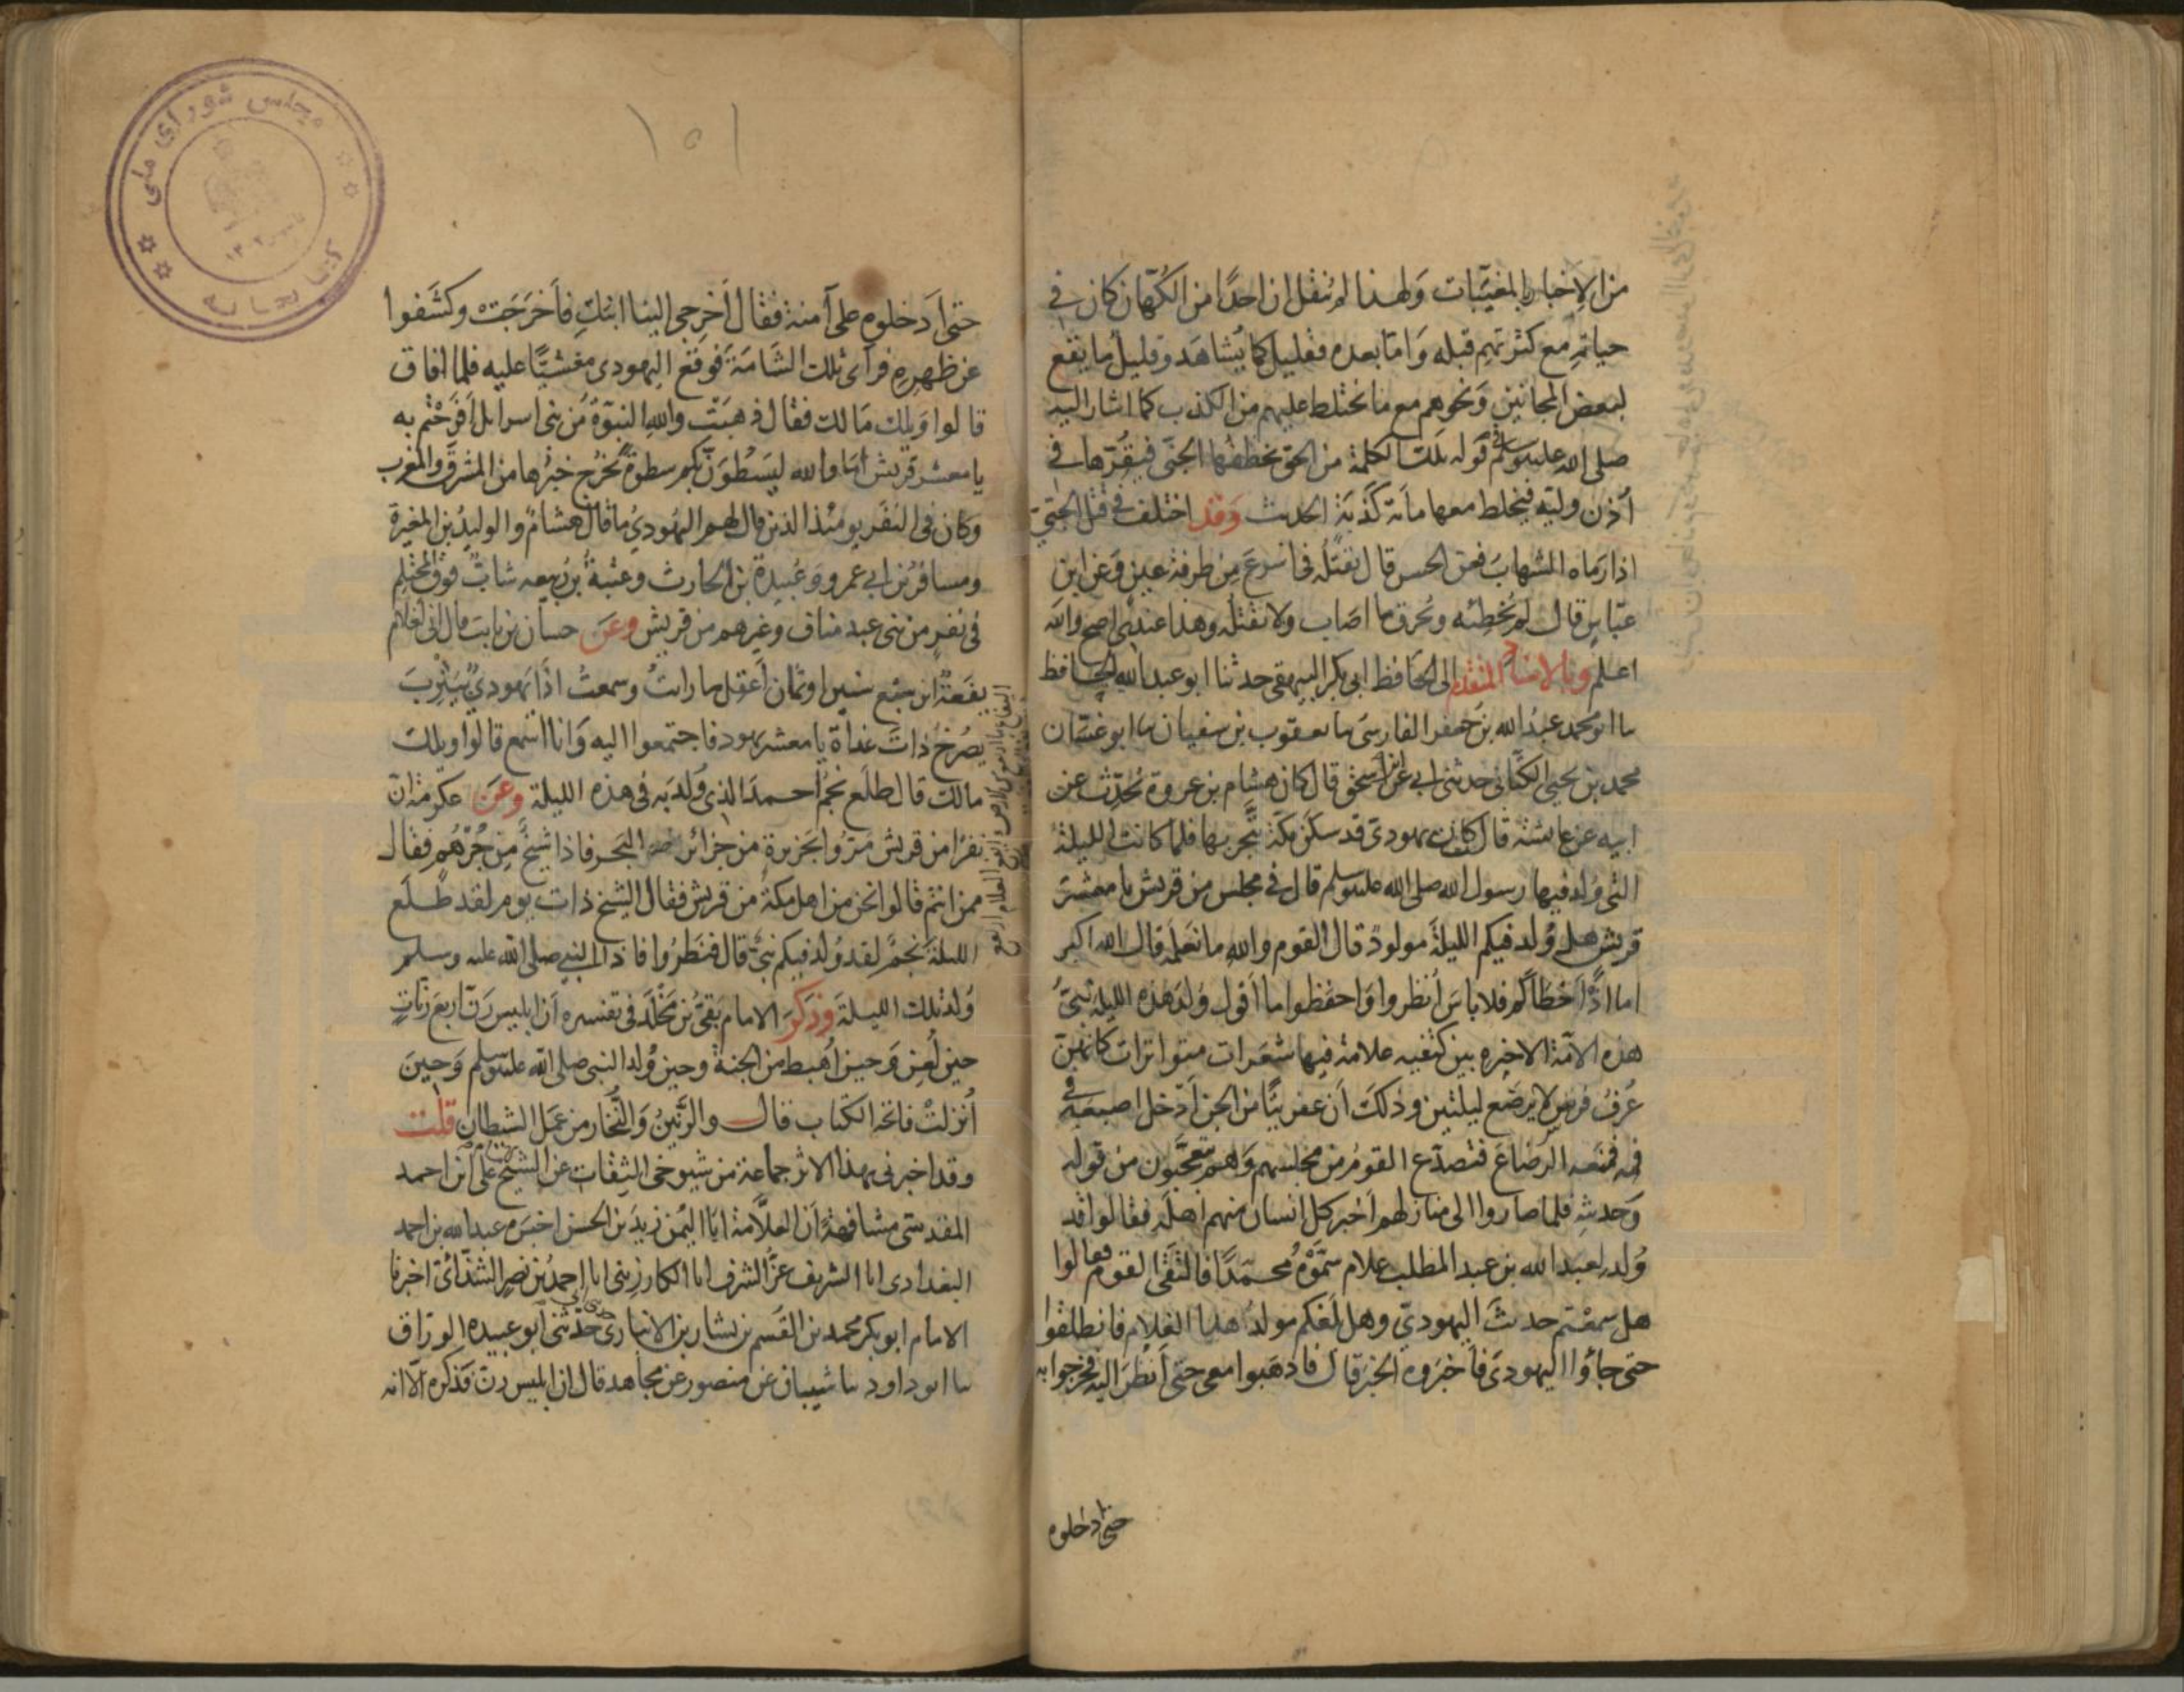 من الاخبار بالمغيبات ولهذا لم ينقل ان احدا من الكهان كان في
حياته مع كثرتهم قبله واما بعده فقليل كما يشاهد وقليل ما يقع
لبعض المجانين ونحوهم مع ما يختلط عليهم من الكذب كما اشار اليه
صلى الله عليه وسلم في قوله تلك الكلمة من الحق يخطفها الجني فيقرها في
اذن وليه فيخلط معها مائة كذبة الحديث وقد اختلف في قتل الجني
اذا رماه الشهاب فعن الحسن قال يقتله في اسرع من طرفة عين وعن ابن
عباس قال لم يخطئه ويحرق ما اصاب ولا يقتله وهذا عندي اصح والله
اعلم وبالاسناد المتقدم الى الحافظ ابي بكر البيهقي حدثنا ابو عبد الله الحافظ
نا ابو محمد عبد الله بن جعفر الفارسي نا يعقوب بن سفيان نا ابو غسان
محمد بن يحيى الكناني حدثني ابي عن ابن اسحق قال كان هشام بن عروة يحدث عن
ابيه عن عائشة قال كان يهودي قد سكن مكة يتجر بها فلما كانت الليلة
التي ولد فيها رسول الله صلى الله عليه وسلم قال في مجلس من قريش يا معشر
قريش هل ولد فيكم الليلة مولود قال القوم والله ما نعلمه قال الله اكبر
اما اذا اخطاكم فلا باس انظروا واحفظوا ما اقول ولد هذه الليلة نبي
هذه الامة الاخيره بين كتفيه علامة فيها شعرات متواترات كانهن
عرف فرس لا يرضع ليلتين وذلك ان عفريتا من الجن ادخل اصبعه في
فمه فمنعه الرضاع فتصدع القوم من مجلسهم وهم متعجبون من قوله
وحديثه فلما صاروا الى منازلهم اخبر كل انسان منهم اهله فقالوا قد
ولد لعبد الله بن عبد المطلب غلام سموه محمدا فالتقى القوم فقالوا
هل سمعتم حديث اليهودي وهل بلغكم مولد هذا الغلام فانطلقوا
حتى جاؤا اليهودي فاخبروه الخبر قال فاذهبوا معي حتى انظر اليه فخرجوا به
حتى ادخلوه
١٥١
حتى ادخلوه على آمنة فقال اخرجي الينا ابنك فاخرجته وكشفوا
عن ظهره فرأى تلك الشامة فوقع اليهودي مغشيا عليه فلما افاق
قالوا ويلك مالك فقال ذهبت والله النبوة من بني اسرائل افرحتم به
يا معشر قريش اما والله ليسطون بكم سطوة يخرج خبرها من المشرق والمغرب
وكان في النفر يومئذ الذين قال لهم اليهودي ما قال هشام والوليد بن المغيرة
ومسافر بن ابي عمرو وعبيدة بن الحارث وعتبة بن ربيعه شاب فوق المحتلم
في نفر من بني عبد مناف وغيرهم من قريش وعن حسان بن ثابت قال اني لغلام
يفعة ابن سبع سنين او ثمان اعقل ما رايت وسمعت اذا يهودي بيثرب
يصرخ ذات غداة يا معشر يهود فاجتمعوا اليه وانا اسمع قالوا ويلك
مالك قال طلع نجم احمد الذي ولد به في هذه الليلة وعن عكرمة ان
نفرا من قريش مروا بجزيرة من جزائر البحر فاذا شيخ من جرهم فقال
ممن انتم قالوا نحن من اهل مكة من قريش فقال الشيخ ذات يوم لقد طلع
الليلة نجم لقد ولد فيكم نبي قال فنظروا فاذا النبي صلى الله عليه وسلم
ولد تلك الليلة وذكر الامام بقي بن مخلد في تفسيره ان ابليس رن اربع رنات
حين لعن وحين اهبط من الجنة وحين ولد النبي صلى الله عليه وسلم وحين
انزلت فاتحة الكتاب قال والرنين والنخار من عمل الشيطان قلت
وقد اخبرني بهذا الاثر جماعة من شيوخي الثقات عن الشيخ علي ابن احمد
المقدسي مشافهة ان العلامة ابا اليمن زيد بن الحسن اخبره عبد الله بن احمد
البغدادي انا الشريف عز الشرف انا الكارزيني انا احمد بن نصر الشذائي اخبرنا
الامام ابو بكر محمد بن القسم بن بشار بن الانباري حدثني ابي حدثني ابو عبيده الوراق
نا ابو داود نا شيبان عن منصور عن مجاهد قال ان ابليس رن فذكره الا انه
مجلس شورای ملی
کتابخانه